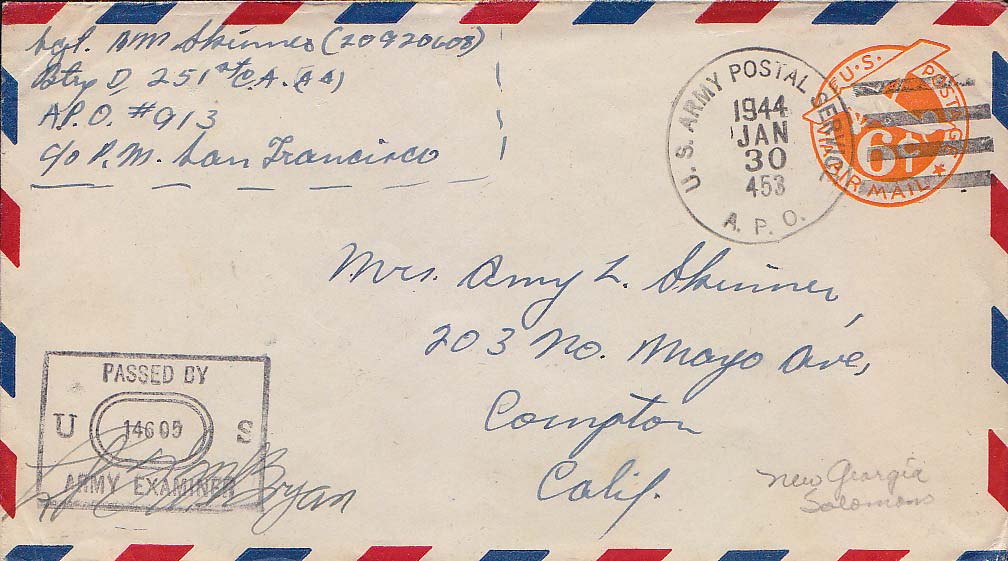 Sgt. B M Skinner (20920608)
Btry D, 251st C.A. (AA)
A.P.O. #913
c/o P.M. San Francisco
U.S. ARMY POSTAL SERVICE
1944
JAN
30
453
A.P.O.
U.S. POSTAGE
6¢
VIA AIR MAIL
Mrs. Amy L. Skinner,
203 No. Mayo Ave,
Compton
Calif.
PASSED BY
U 14605 S
ARMY EXAMINER
Bryan
New Georgia
Solomons